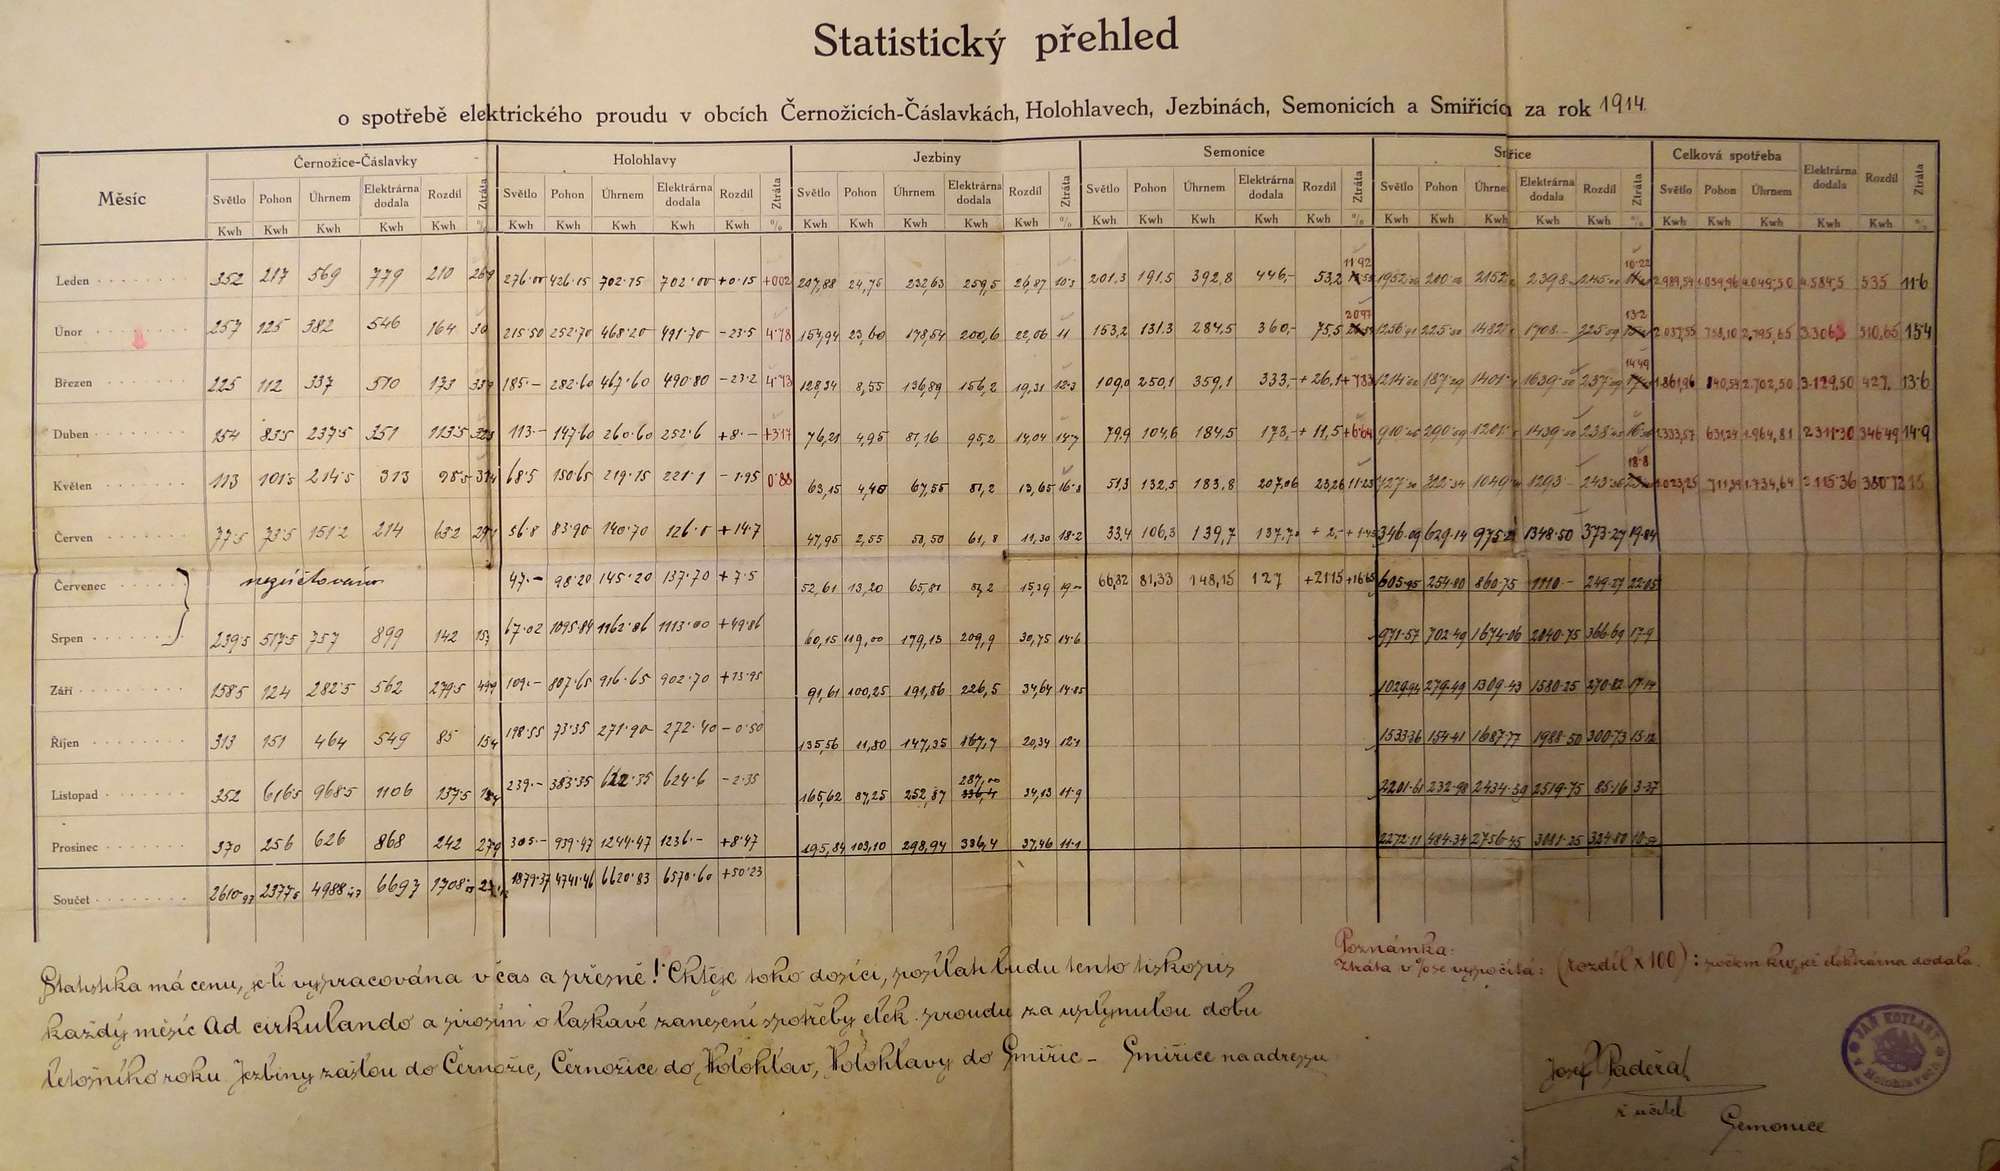 Statistický přehled
o spotřebě elektrického proudu v obcích Černožicích-Čáslavkách, Holohlavech, Jezbinách, Semonicích a Smiřicích za rok 1914.
Měsíc Černožice-Čáslavky Holohlavy Jezbiny Semonice Smiřice Celková spotřeba Elektrárna dodala Rozdíl Ztráta
Světlo Pohon Úhrnem Elektrárna dodala Rozdíl Ztráta Světlo Pohon Úhrnem Elektrárna dodala Rozdíl Ztráta Světlo Pohon Úhrnem Elektrárna dodala Rozdíl Ztráta Světlo Pohon Úhrnem Elektrárna dodala Rozdíl Ztráta Světlo Pohon Úhrnem Elektrárna dodala Rozdíl Ztráta Světlo Pohon Úhrnem
Kwh Kwh Kwh Kwh Kwh % Kwh Kwh Kwh Kwh Kwh % Kwh Kwh Kwh Kwh Kwh % Kwh Kwh Kwh Kwh Kwh % Kwh Kwh Kwh Kwh Kwh % Kwh Kwh Kwh Kwh Kwh %
Leden 352 217 569 779 210 26·9 276·00 426·15 702·15 702·00 +0·15 +002 207,88 24,75 232,63 259,5 26,87 10·3 201,3 191,5 392,8 446,- 53,2 11·92 2398 10·22 2.989,54 1.059,96 4.049,50 4.584,5 535 11·6
Únor 257 125 382 546 164 30 215·50 252·70 468·20 491·70 -23·5 4·78 154,94 23,60 178,54 200,6 22,06 11 153,2 131,3 284,5 360,- 75,5 2097 1708 13·2 2.037,55 758,10 2.795,65 3.306,3 510,65 15·4
Březen 225 112 337 510 173 185·- 282·60 467·60 490·80 -23·2 4·73 128,34 8,55 136,89 156,2 19,31 12·3 109,0 250,1 359,1 333,- +26,1 +7·83 14·49 1.861,96 840,54 2.702,50 3.129,50 427, 13·6
Duben 154 83·5 237·5 351 113·5 113·- 147·60 260·60 252·6 +8·- +3·17 76,21 4,95 81,16 95,2 14,04 14·7 79,9 104,6 184,5 173,- +11,5 +6·64 1.333,57 631,24 1.964,81 2311·30 346·49 14·9
Květen 113 101·5 214·5 313 98·5 68·5 150·65 219·15 221·1 -1·95 0·88 63,15 4,40 67,55 81,2 13,65 16·8 51,3 132,5 183,8 207,06 23,26 11·23 1293 18·8 1.023,25 711,39 1.734,64 2.115·36 380·72
Červen 77·5 73·5 151·2 214 63·2 56·8 83·90 140·70 126·0 +14·7 47,95 2,55 50,50 61,8 11,30 18·2 33,4 106,3 139,7 137,7 +2,- +1·45 346·09 629·14 1348·50 373·27
Červenec nezúčtováno 47·- 98·20 145·20 137·70 +7·5 52,61 13,20 65,81 81,2 15,39 19·- 66,82 81,33 148,15 127 +21·15 +16·65 605·95 254·80 860·75 1110·- 249·27 22·05
Srpen 239·5 517·5 757 899 142 67·02 1095·84 1162·86 1113·00 +49·86 60,15 119,00 179,15 209,9 30,75 14·6 971·57 702·49 1674·06 2040·75 366·69 17·9
Září 158·5 124 282·5 562 279·5 109·- 807·65 916·65 902·70 +13·95 91,61 100,25 191,86 226,5 34,64 1029·94 279·49 1309·43 1580·25 270·82 17·14
Říjen 313 151 464 549 85 15·4 198·55 73·35 271·90 272·40 -0·50 135,56 11,80 147,35 167,7 20,34 12·1 1533·36 154·41 1687·77 1988·50 300·73 15·12
Listopad 352 616·5 968·5 1106 137·5 239·- 383·35 622·35 624·6 -2·35 165,62 87,25 252,87 287,00 336,4 34,13 11·9 2201·61 232·98 2434·59 2519·75 85·16 3·37
Prosinec 370 256 626 868 242 27·9 305·- 939·47 1244·47 1236·- +8·47 195,84 103,10 298,94 336,4 37,46 11·1 2272·11 484·34 2756·45 3081·25 324·80
Součet 2610·97 2377·5 4988·47 6697 1879·37 4741·46 6620·83 6570·60 +50·23
Poznámka:
Ztráta v % se vypočítá: (rozdíl x 100) : počtem kw, jež elektrárna dodala.
Statistika má cenu, je-li vypracována včas a přesně! Chtěje toho docíci, posílati budu tento tiskopis
každý měsíc Ad cirkulando a prosím o laskavé zanesení spotřeby elek. proudu za uplynulou dobu
letošního roku. Jezbiny zašlou do Černožic, Černožice do Holohlav, Holohlavy do Smiřic - Smiřice na adressu
Josef Paděra
ř. učitel
Semonice
JAN KOTLANT
Holohlavech